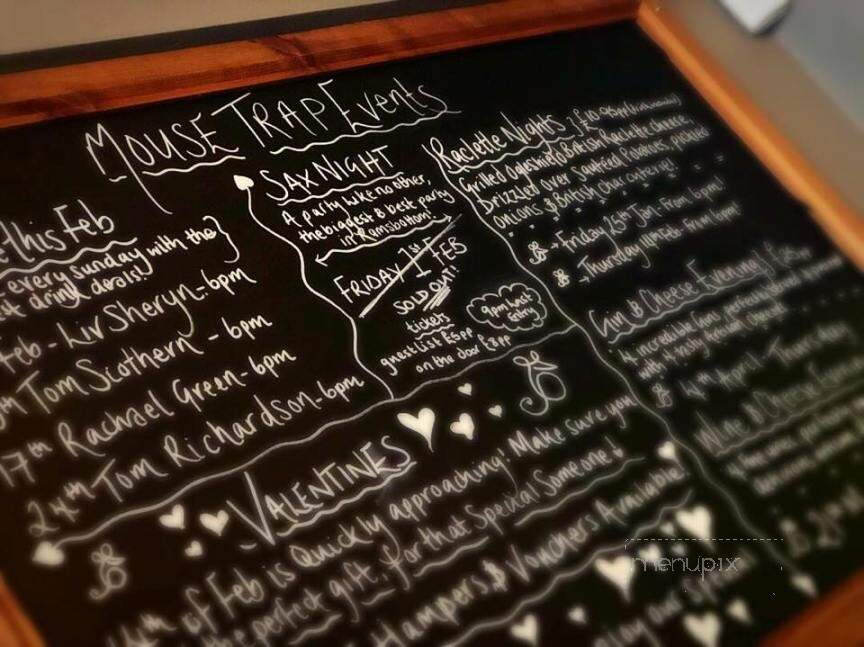 MOUSE TRAP Events
this Feb
every sunday with the
drink deals!
Feb - Liv Sheryn - 6pm
Tom Scothern - 6pm
17th Rachael Green - 6pm
24th Tom Richardson - 6pm
SAX NIGHT
A party like no other,
the biggest & best party
in Ramsbottom!
FRIDAY 1st FEB
SOLD OUT!
tickets
guest List £5pp
on the door £8pp
9pm last
Entry
Raclette Nights } £10.95pp
Grilled Ogleshield British Raclette cheese,
Drizzled over Sautéed Potatoes, pickled
onions & British charcuterie!
Friday 25th Jan. From 6pm!
Thursday 14th Feb. From 6pm!
Gin & Cheese Evening!
4 incredible Gins, perfectly
with 4 Artisan cheeses!
4th April - Thursday
Wine & Cheese
VALENTINES
14th of Feb is Quickly approaching! Make sure you
the perfect gift for that Special Someone
Hampers & Vouchers Available
our special
menupix